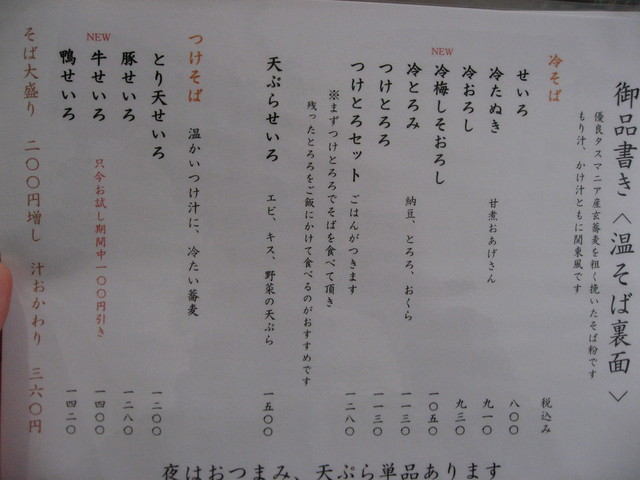 御品書き〈温そば裏面〉
優良タスマニア産玄蕎麦を粗く挽いたそば粉です
もり汁、かけ汁ともに関東風です
冷そば
税込み
せいろ 八〇〇
冷たぬき 甘煮おあげさん 九一〇
冷おろし 九三〇
NEW
冷梅しそおろし 一〇五〇
冷とろみ 納豆、とろろ、おくら 一一三〇
つけとろろ 一一三〇
つけとろセット ごはんがつきます 一二八〇
※まずつけとろろでそばを食べて頂き
残ったとろろをご飯にかけて食べるのがおすすめです
天ぷらせいろ エビ、キス、野菜の天ぷら 一五〇〇
つけそば 温かいつけ汁に、冷たい蕎麦
とり天せいろ 一二〇〇
豚せいろ 一二八〇
NEW
牛せいろ 只今お試し期間中一〇〇円引き 一四〇〇
鴨せいろ 一四二〇
そば大盛り 二〇〇円増し 汁おかわり 三六〇円
夜はおつまみ、天ぷら単品あります